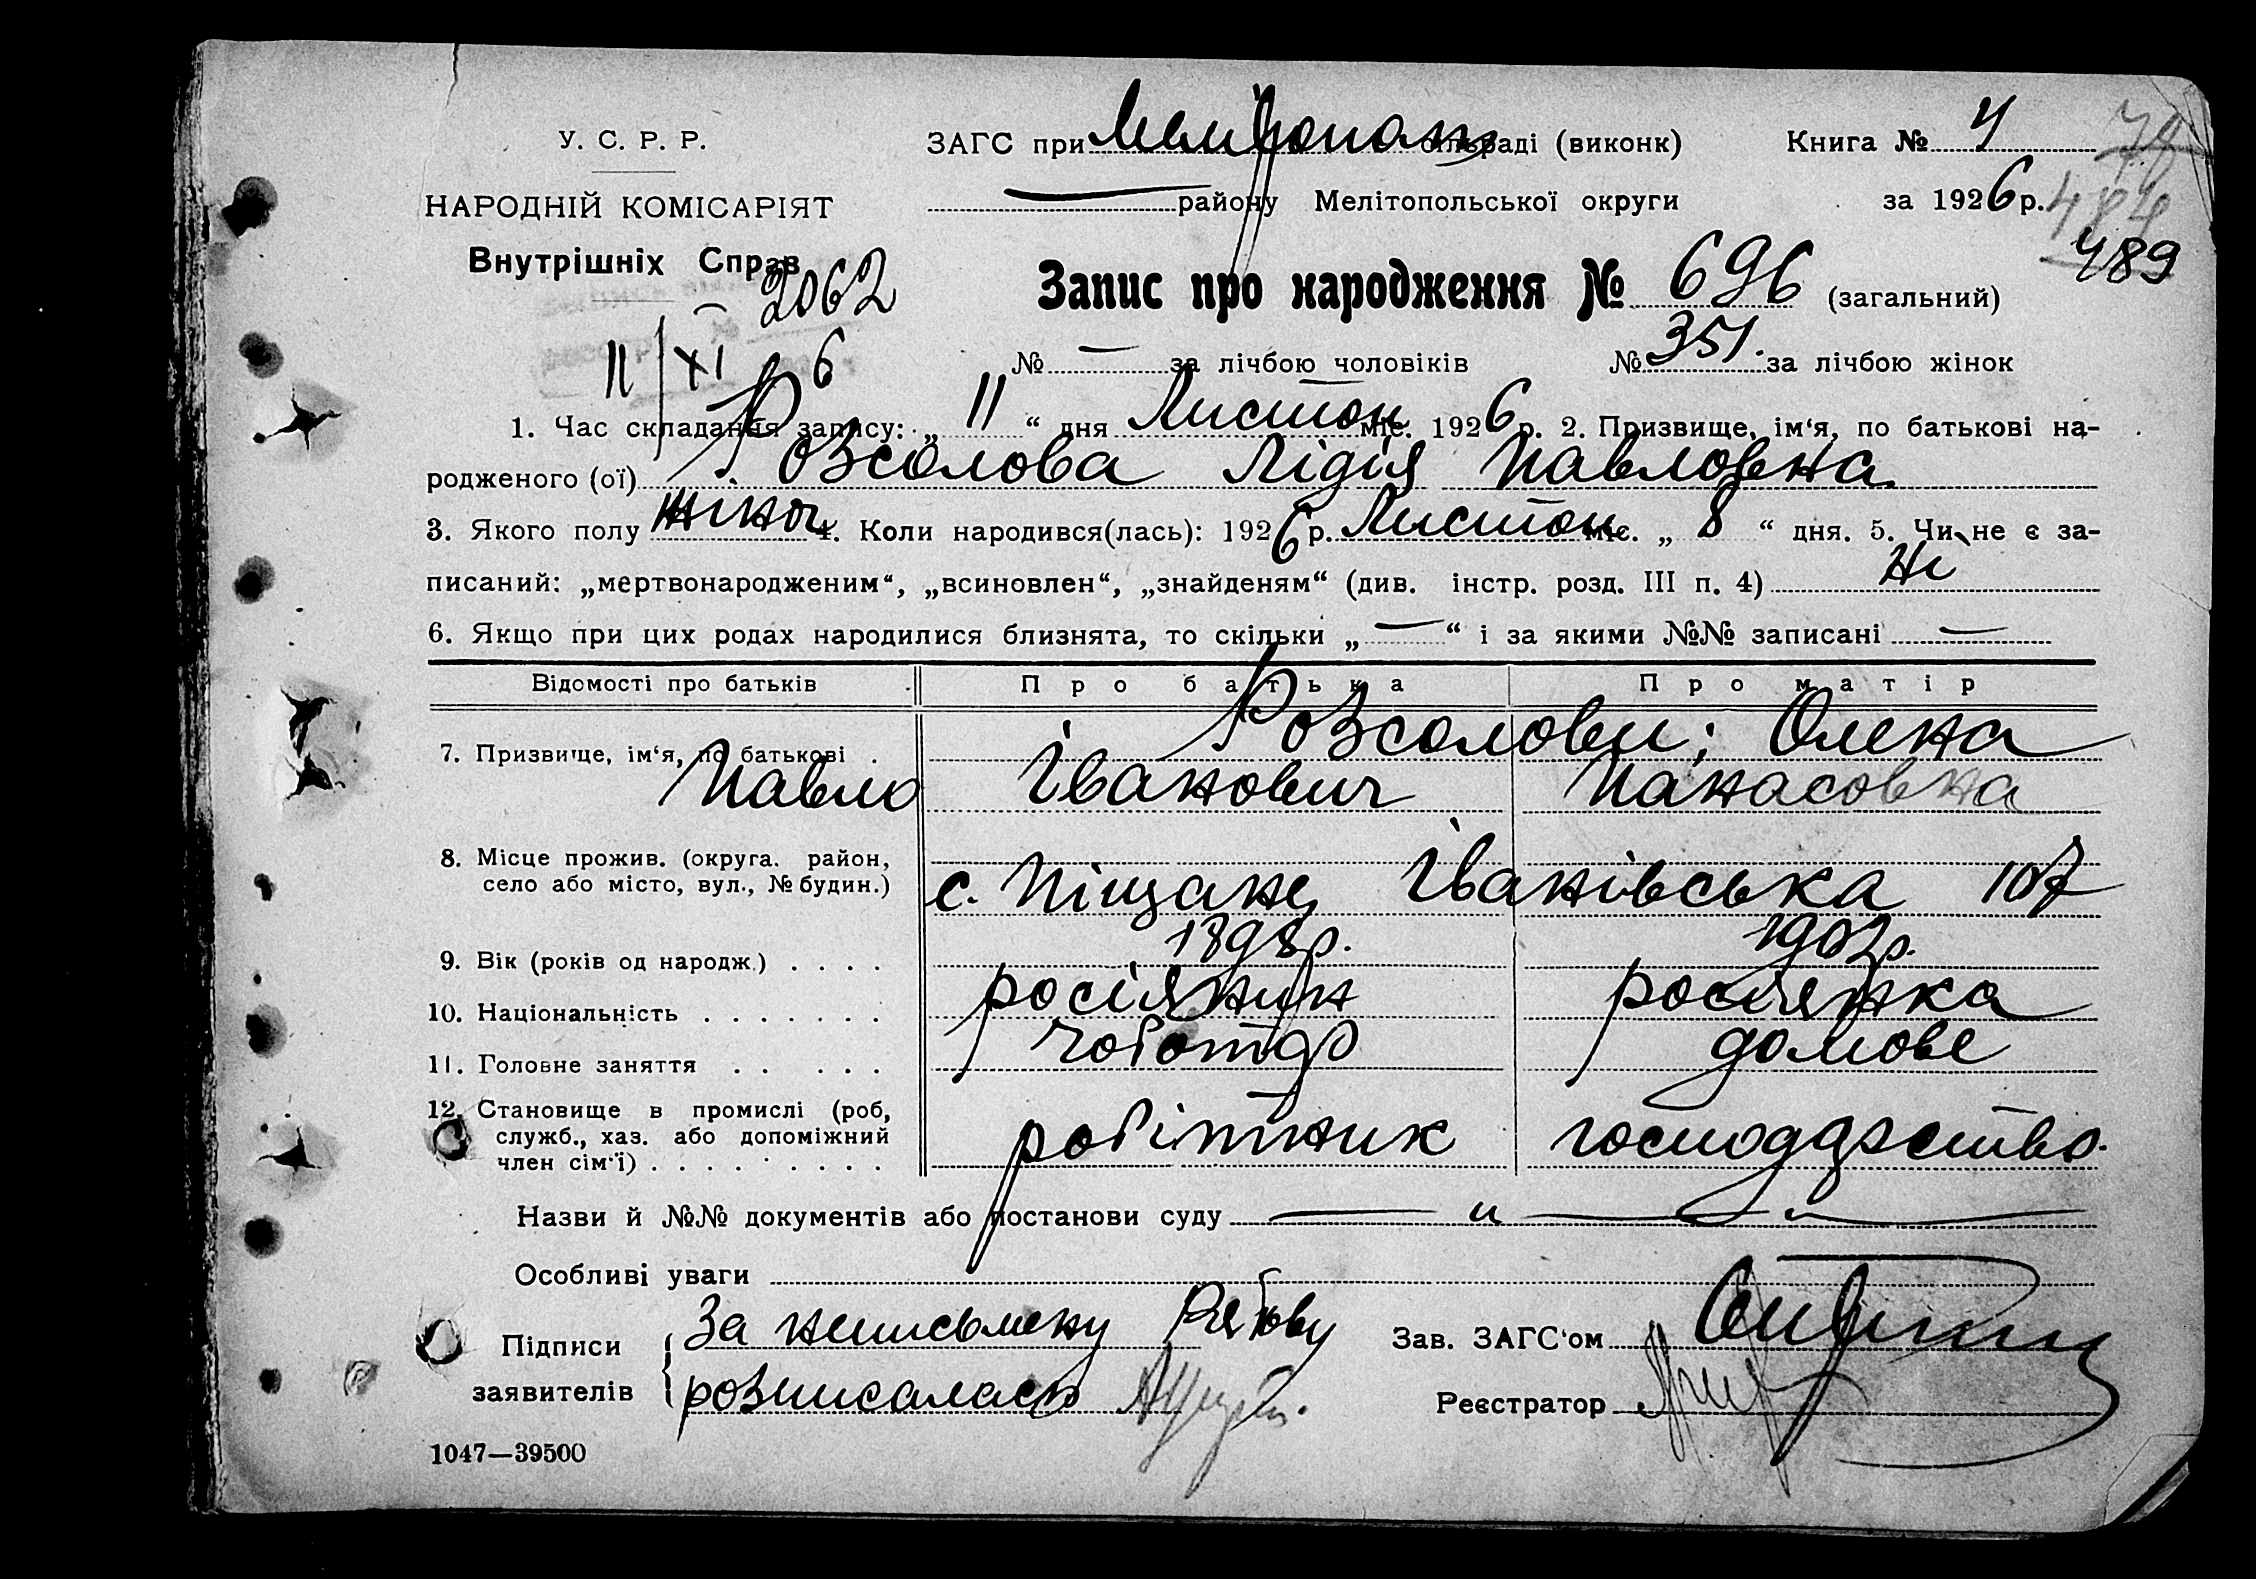 У. С. Р. Р.
ЗАГС при сільраді (виконк) Книга № 4
НАРОДНІЙ КОМІСАРІЯТ
району Мелітопольської округи за 1926 р.
484
489
Внутрішніх Справ
2062
Запис про народження № 696 (загальний)
11/XI 6
№ — за лічбою чоловіків № 351. за лічбою жінок
1. Час складання запису: „ 11 “ дня Листоп міс. 1926 р. 2. Призвище, ім‘я, по батькові на-
родженого (ої) Розсолова Лідія Павловна
3. Якого полу жіноч 4. Коли народився(лась): 1926 р. Листоп міс. „ 8 “ дня. 5. Чи не є за-
писаний: „мертвонародженим“, „всиновлен“, „знайденям“ (див. інстр. розд. III п. 4) Ні
6. Якщо при цих родах народилися близнята, то скільки „ — “ і за якими №№ записані —
Відомості про батьків Про батька Про матір
7. Призвище, ім‘я, по батькові . Розсолови; Олена
Павло Іванович Панасовна
8. Місце прожив. (округа. район,
село або місто, вул., № будин.) с. Піщане Іванівська 107
9. Вік (років од народж.) . . . . 1898р. 1902р.
10. Національність . . . . . . . росіянин росіянка
11. Головне заняття . . . . . чоботар домове
12. Становище в промислі (роб,
служб., хаз. або допоміжний
член сім‘ї) . . . . . . . . . робітник господарство.
Назви й №№ документів або постанови суду — „ —
Особливі уваги
Підписи За неписьмену
заявителів розписалась
Зав. ЗАГС‘ом
Реєстратор
1047—39500